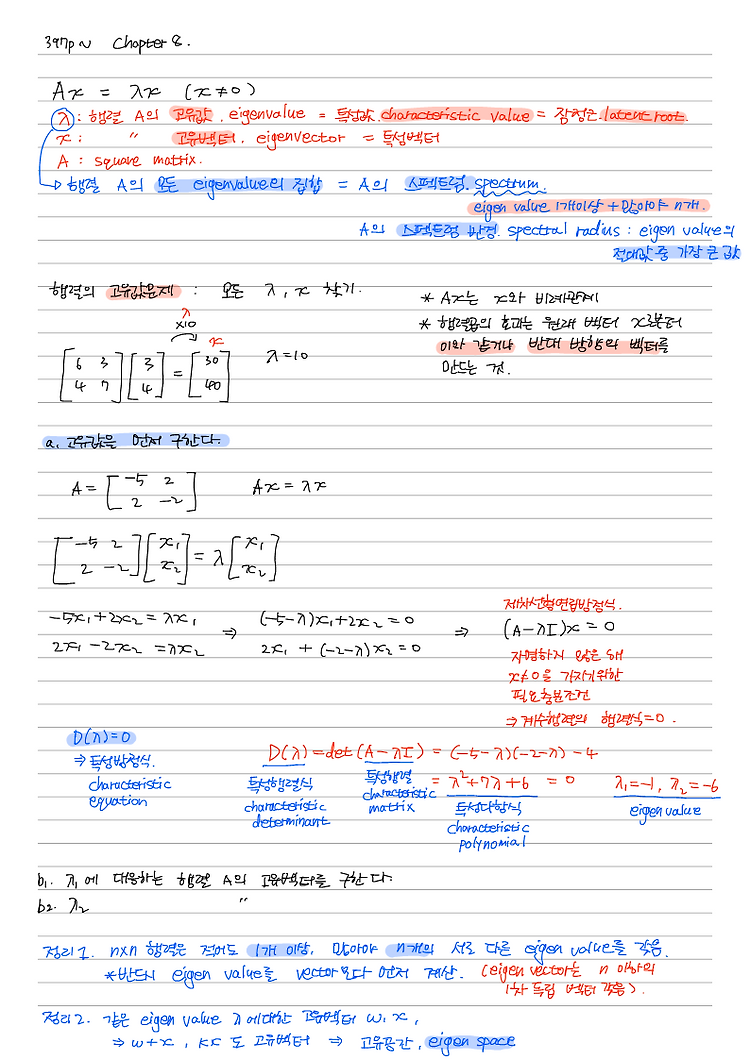 397p ~ Chapter 8.
Ax = λx (x≠0)
λ : 행렬 A의 고유값. eigenvalue = 특성값. characteristic value = 잠정근. latent root.
x : 〃 고유벡터. eigenvector = 특성벡터
A : square matrix.
→ 행렬 A의 모든 eigenvalue의 집합 = A의 스펙트럼. spectrum.
eigen value 1개이상 + 많아야 n개.
A의 스펙트럼 반경. spectral radius : eigen value의
절대값 중 가장 큰 값
행렬의 고유값문제 : 모든 λ, x 찾기.
* Ax는 x와 비례관계
* 행렬곱의 효과는 원래 벡터 x로부터
이와 같거나 반대 방향의 벡터를
만드는 것.
λ
x10
x
[6 3; 4 7] [3; 4] = [30; 40] λ=10
a. 고유값을 먼저 구한다.
A = [-5 2; 2 -2] Ax = λx
[-5 2; 2 -2] [x₁; x₂] = λ [x₁; x₂]
-5x₁+2x₂ = λx₁ ⇒ (-5-λ)x₁+2x₂ = 0
2x₁-2x₂ = λx₂ 2x₁ + (-2-λ)x₂ = 0
제차선형연립방정식.
⇒ (A-λI)x = 0
자명하지 않은 해
x≠0을 가지기위한
필요충분조건
⇒ 계수행렬의 행렬식=0.
D(λ)=0
⇒ 특성방정식.
characteristic
equation
D(λ) = det(A-λI) = (-5-λ)(-2-λ) - 4
= λ²+7λ+6 = 0 λ₁=-1, λ₂=-6
특성행렬식
characteristic
determinant
특성행렬
characteristic
matrix
특성다항식
characteristic
polynomial
eigen value
b1. λ₁에 대응하는 행렬 A의 고유벡터를 구한다.
b2. λ₂ 〃
정리 1. n×n 행렬은 적어도 1개 이상, 많아야 n개의 서로 다른 eigen value를 갖음.
*반드시 eigen value를 vector보다 먼저 계산. (eigen vector는 n 이하의
1차 독립 벡터 갖음).
정리 2. 같은 eigen value λ에대한 고유벡터 w, x,
⇒ w+x, kx 도 고유벡터 ⇒ 고유공간. eigen space